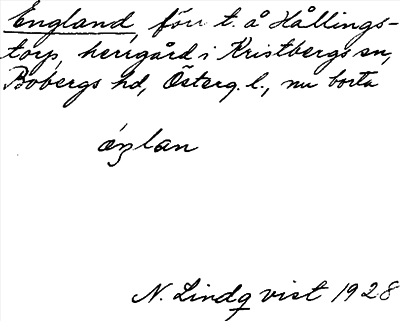 England, förr t. å Hållings-
torp, herrgård i Kristbergs sn,
Bobergs hd, Österg. l., nu borta
áŋlan
N. Lindqvist 1928